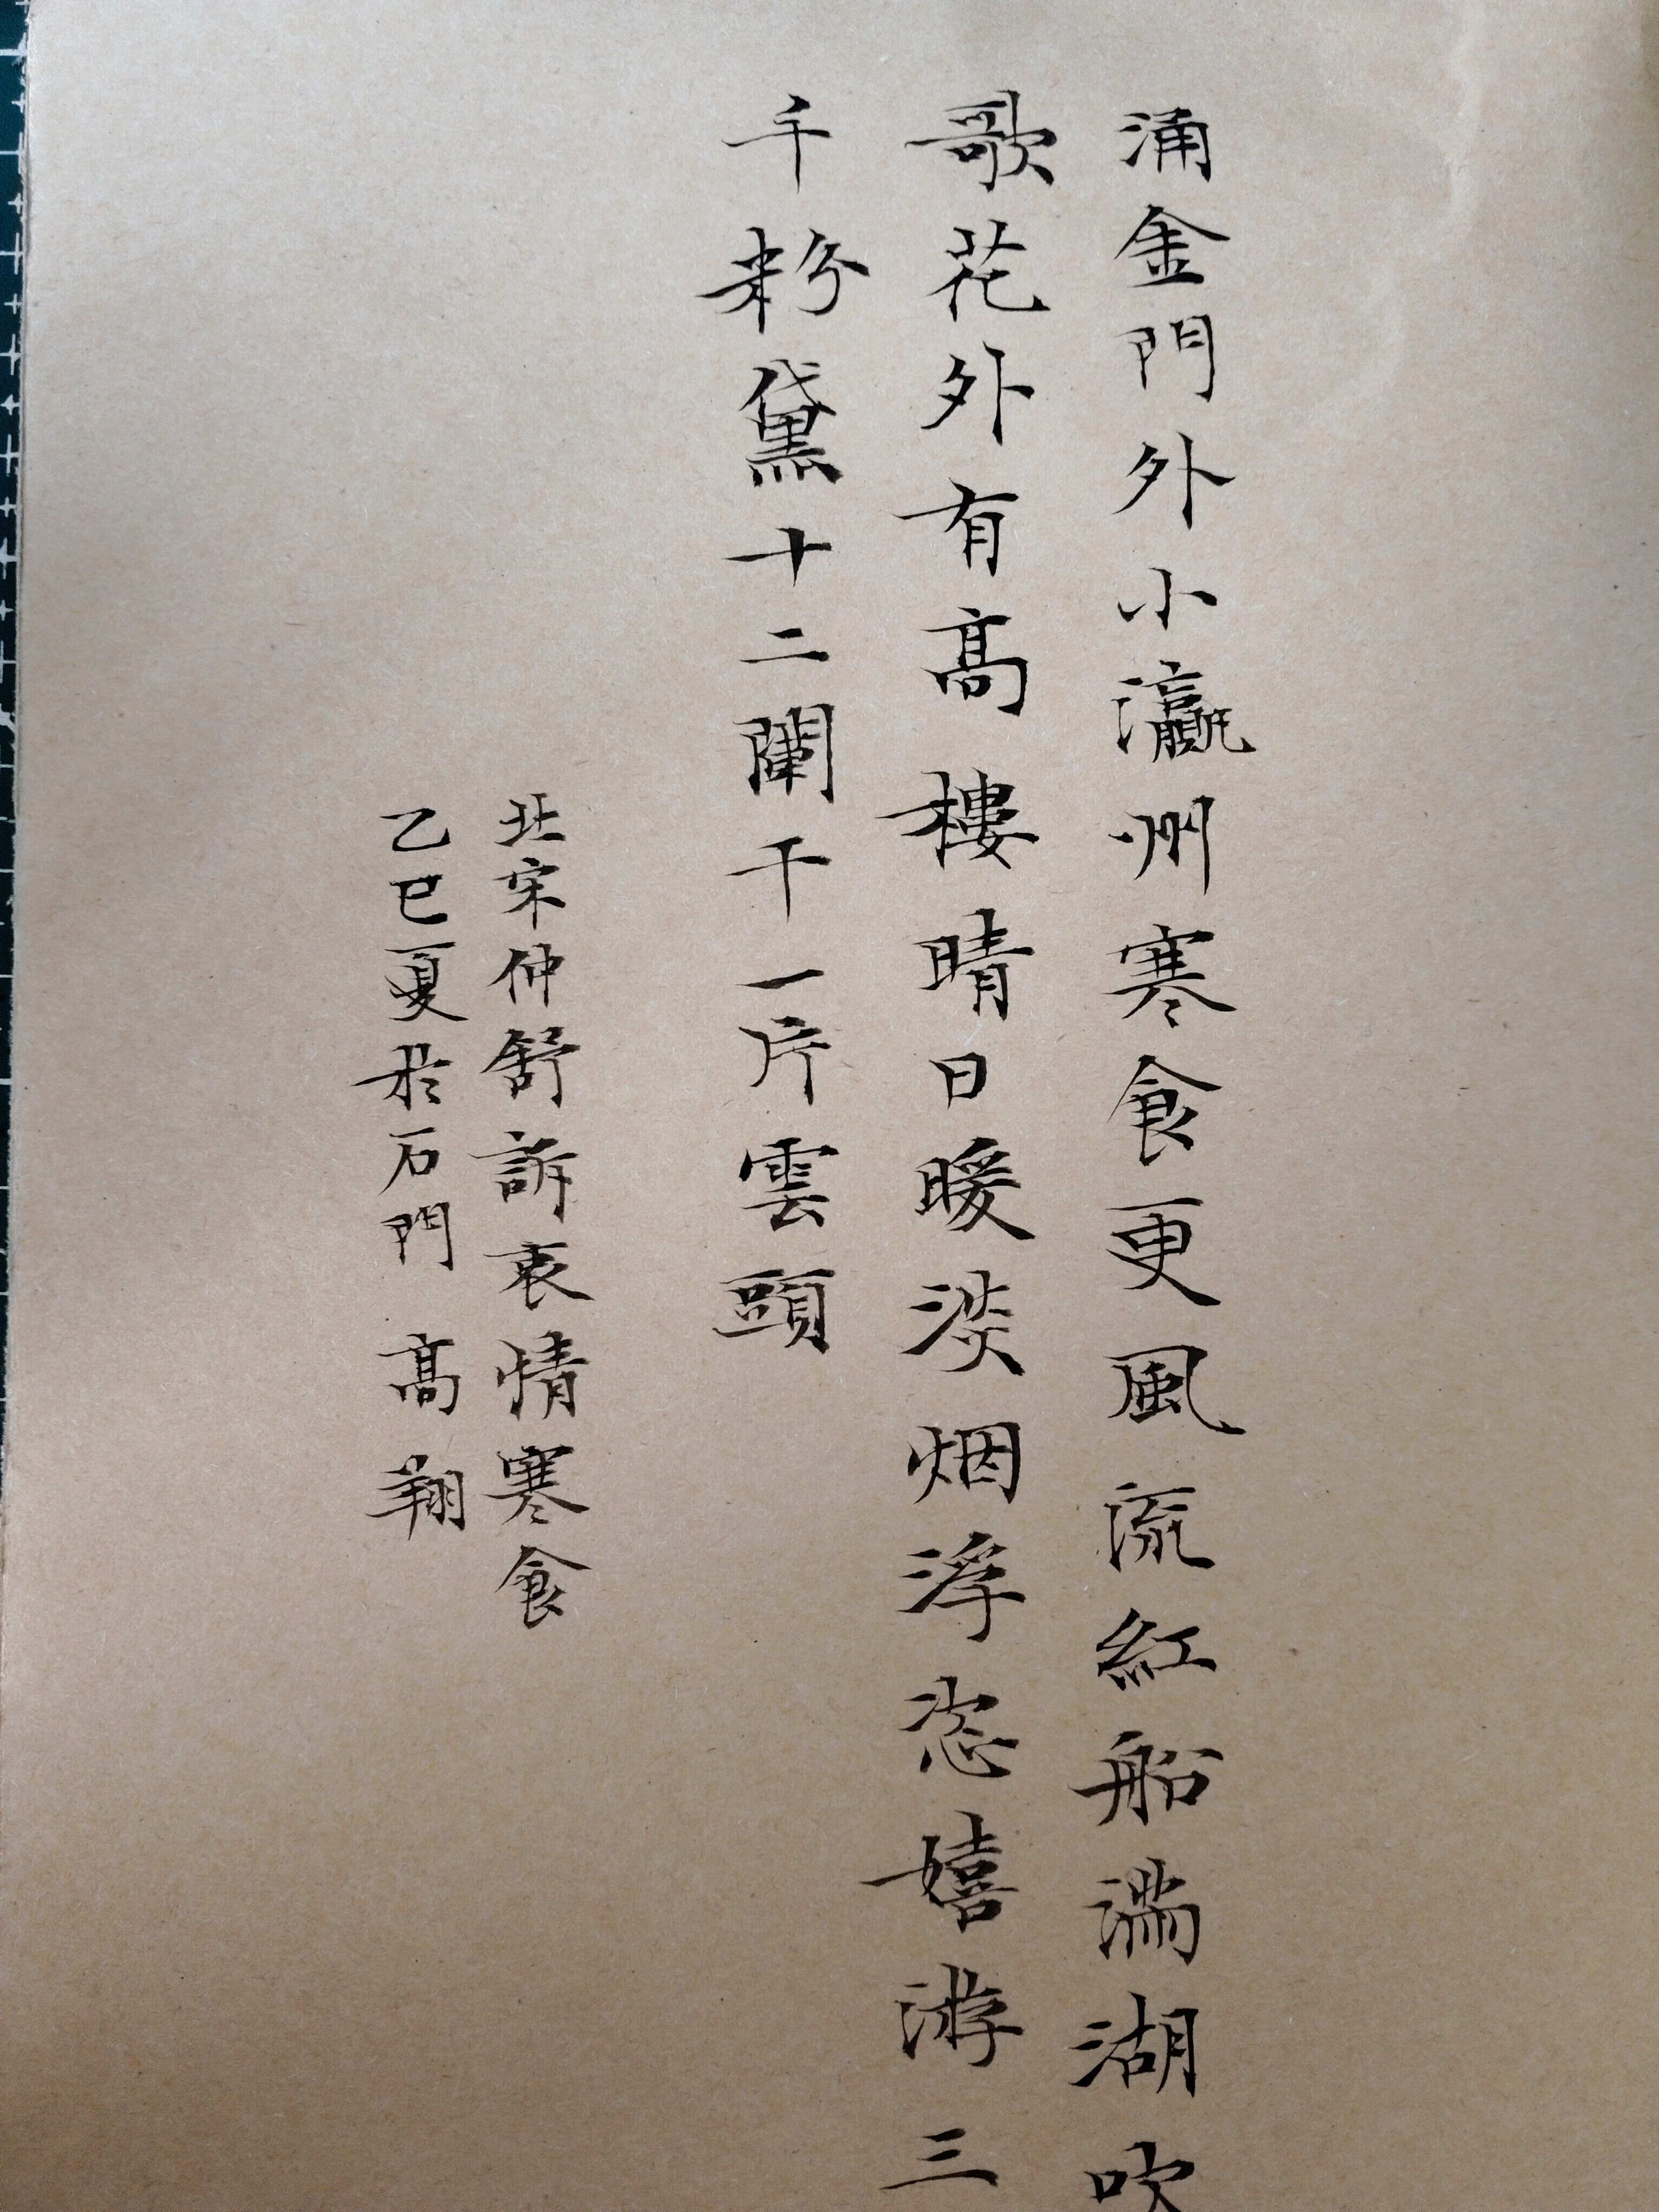 涌金門外小瀛州寒食更風流紅船滿湖吹
歌花外有高樓晴日暖淡烟浮恣嬉游三
千粉黛十二闌干一片雲頭
北宋仲舒訴衷情寒食
乙巳夏於石門 高翔